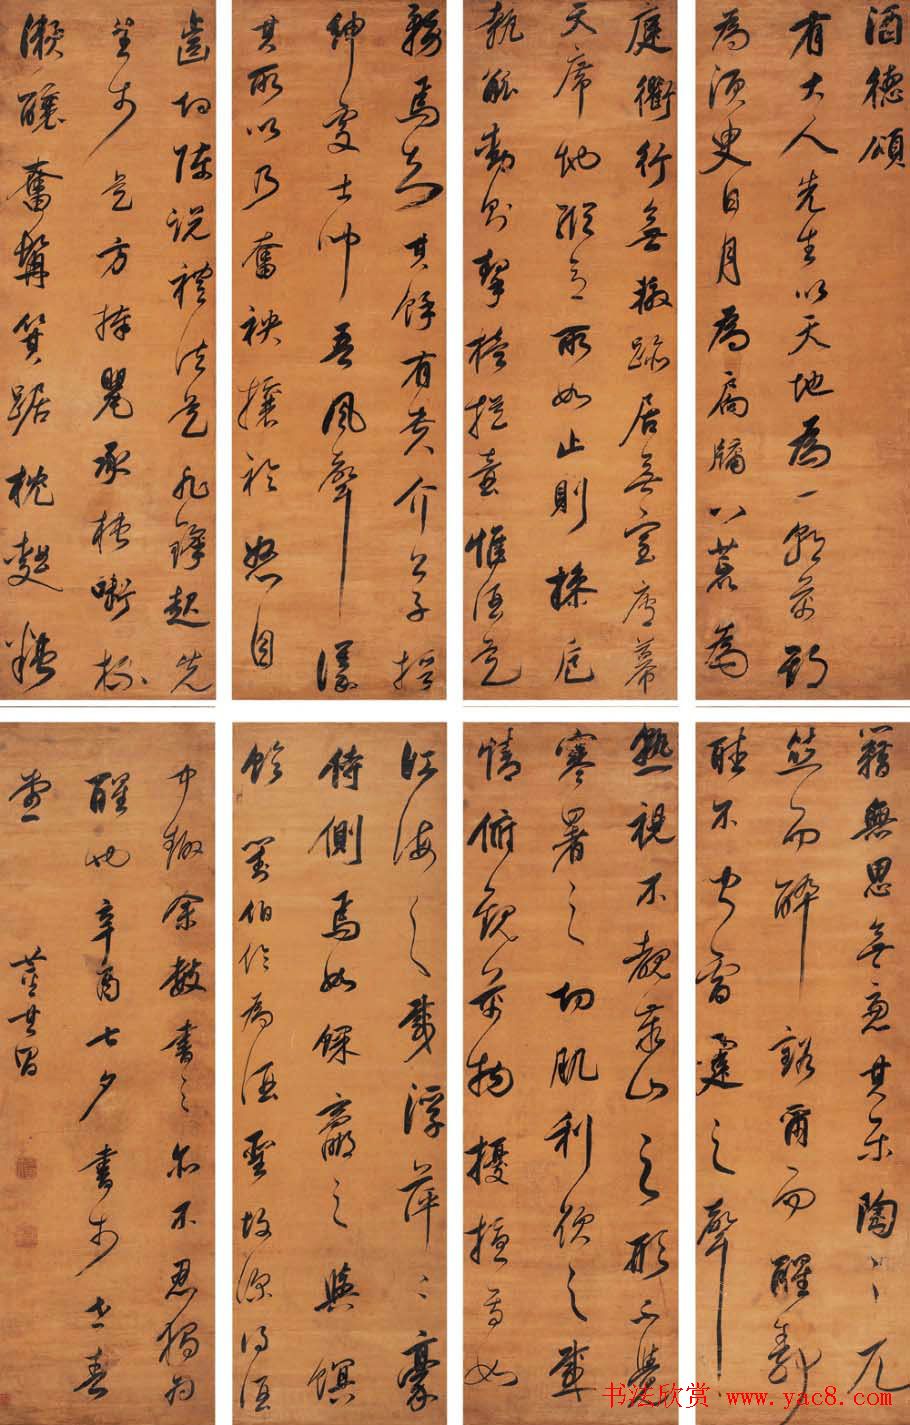 酒德頌
有大人先生以天地為一朝萬期
為須臾日月為扃牖八荒為
庭衢行無轍跡居無室廬幕
天席地縱意所如止則操卮
執觚動則挈榼提壺惟酒是
務焉知其餘有貴介公子搢
紳處士聞吾風聲議
其所以乃奮袂攘衿怒目
齒切陳說禮法是非鋒起先
生於是方捧甖承槽銜杯
漱醪奮髯箕踞枕麴糟
藉無思無慮其樂陶〻兀
然而醉豁爾而醒靜
聽不聞雷霆之聲
熟視不覩泰山之形不覺
寒暑之切肌利欲之感
情俯觀萬物擾擾焉如
江海之載浮萍〻豪
侍側焉如蜾蠃之與螟
蛉 劉伯伶為酒聖故深得酒
中趣余數書之亦不忍獨為
醒也辛酉七夕書於世春
堂 董其昌
书法欣赏 www.yac8.com